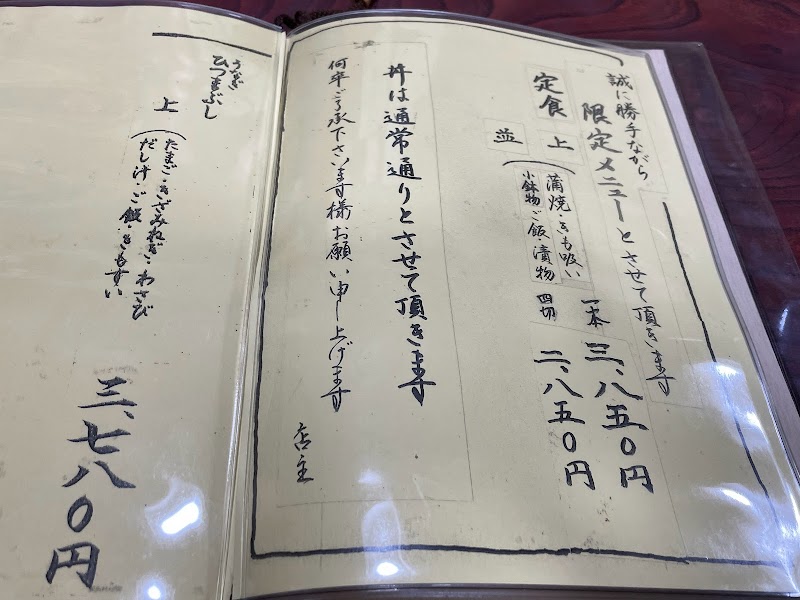 誠に勝手ながら
限定メニューとさせて頂きます
定食
上
蒲焼・きも吸い
小鉢物・ご飯・漬物
一本 三、八五〇円
並
四切 二、八五〇円
丼は通常通りとさせて頂きます
何卒ご了承下さいます様お願い申し上げます
店主
うなぎ
ひつまぶし
上
たまご・きざみねぎ・わさび
だし汁・ご飯・きもすい
三、七八〇円